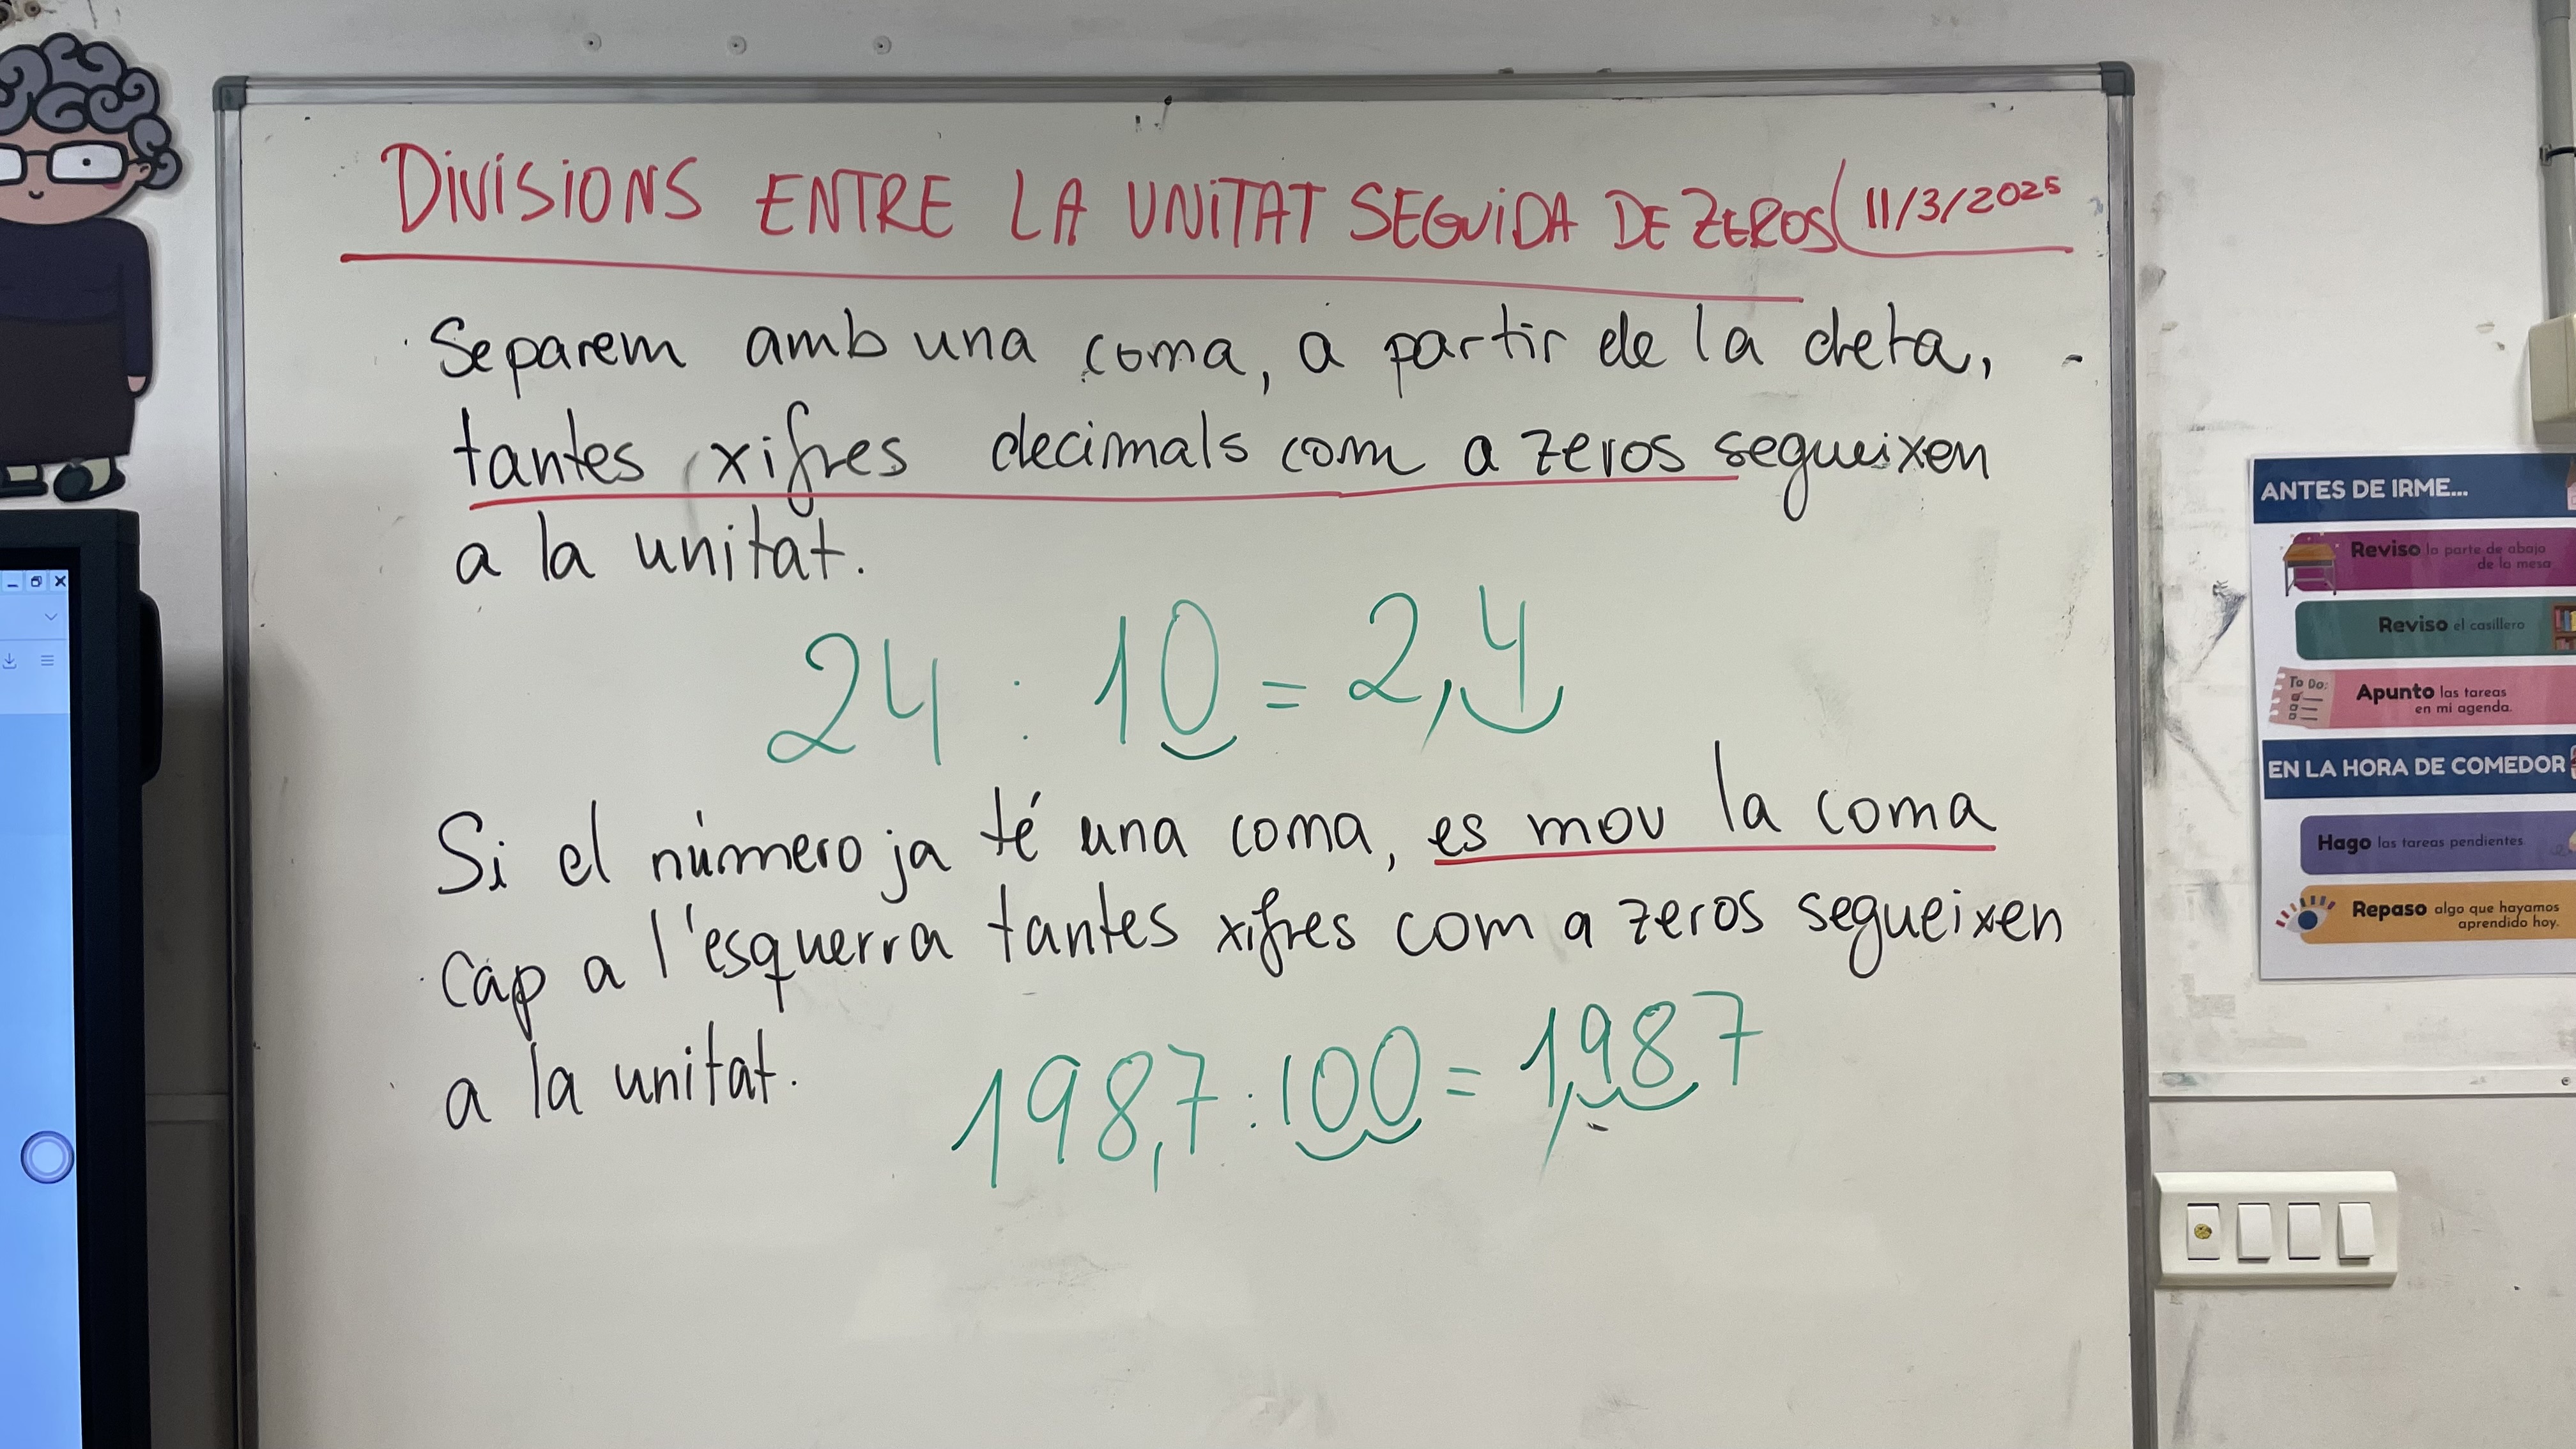 DIVISIONS ENTRE LA UNITAT SEGUIDA DE ZEROS 11/3/2025
Separem amb una coma, a partir de la dreta,
tantes xifres decimals com a zeros segueixen
a la unitat.
24 : 10 = 2,4
Si el número ja té una coma, es mou la coma
cap a l'esquerra tantes xifres com a zeros segueixen
a la unitat.
198,7 : 100 = 1,987
ANTES DE IRME...
Reviso la parte de abajo
de la mesa
Reviso el casillero
To Do:
Apunto las tareas
en mi agenda.
EN LA HORA DE COMEDOR
Hago las tareas pendientes.
Repaso algo que hayamos
aprendido hoy.